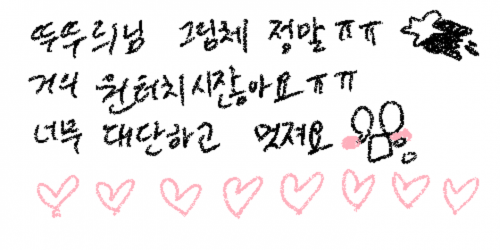 뚜뚜리님 그림체 정말 ㅠㅠ
거의 원터치시잖아요 ㅠㅠ
너무 대단하고 멋져요